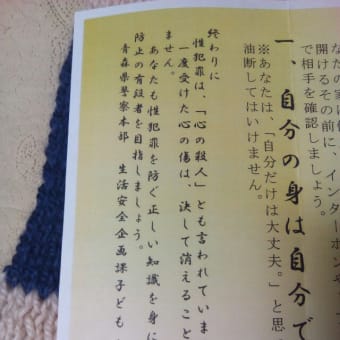 なたの家に
開けるその前に、インターホンや
で相手を確認しましょう。
一、自分の身は自分で
※あなたは、「自分だけは大丈夫。」と思
油断してはいけません。
終わりに
性犯罪は、「心の殺人」とも言われていま
一度受けた心の傷は、決して消えること
ません。
あなたも性犯罪を防ぐ正しい知識を身に
防止の有段者を目指しましょう。
青森県警察本部 生活安全企画課子ども